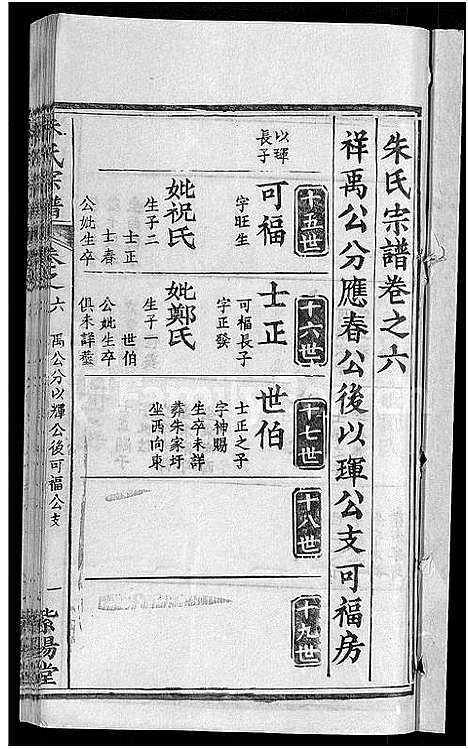 朱氏宗譜卷之六
祥禹公分應春公後以琿公支可福房
十五世
以琿
長子
可福
字旺生
妣祝氏
生子二
士正
士春
公妣生卒
十六世
士正
可福長子
字正發
妣鄭氏
生子一
世伯
公妣生卒
俱未詳塟
十七世
世伯
士正之子
字神賜
生卒未詳
葬朱家圩
坐西向東
十八世
十九世
朱氏宗譜
卷之六
禹公分以琿公後可福公支
一
紫陽堂